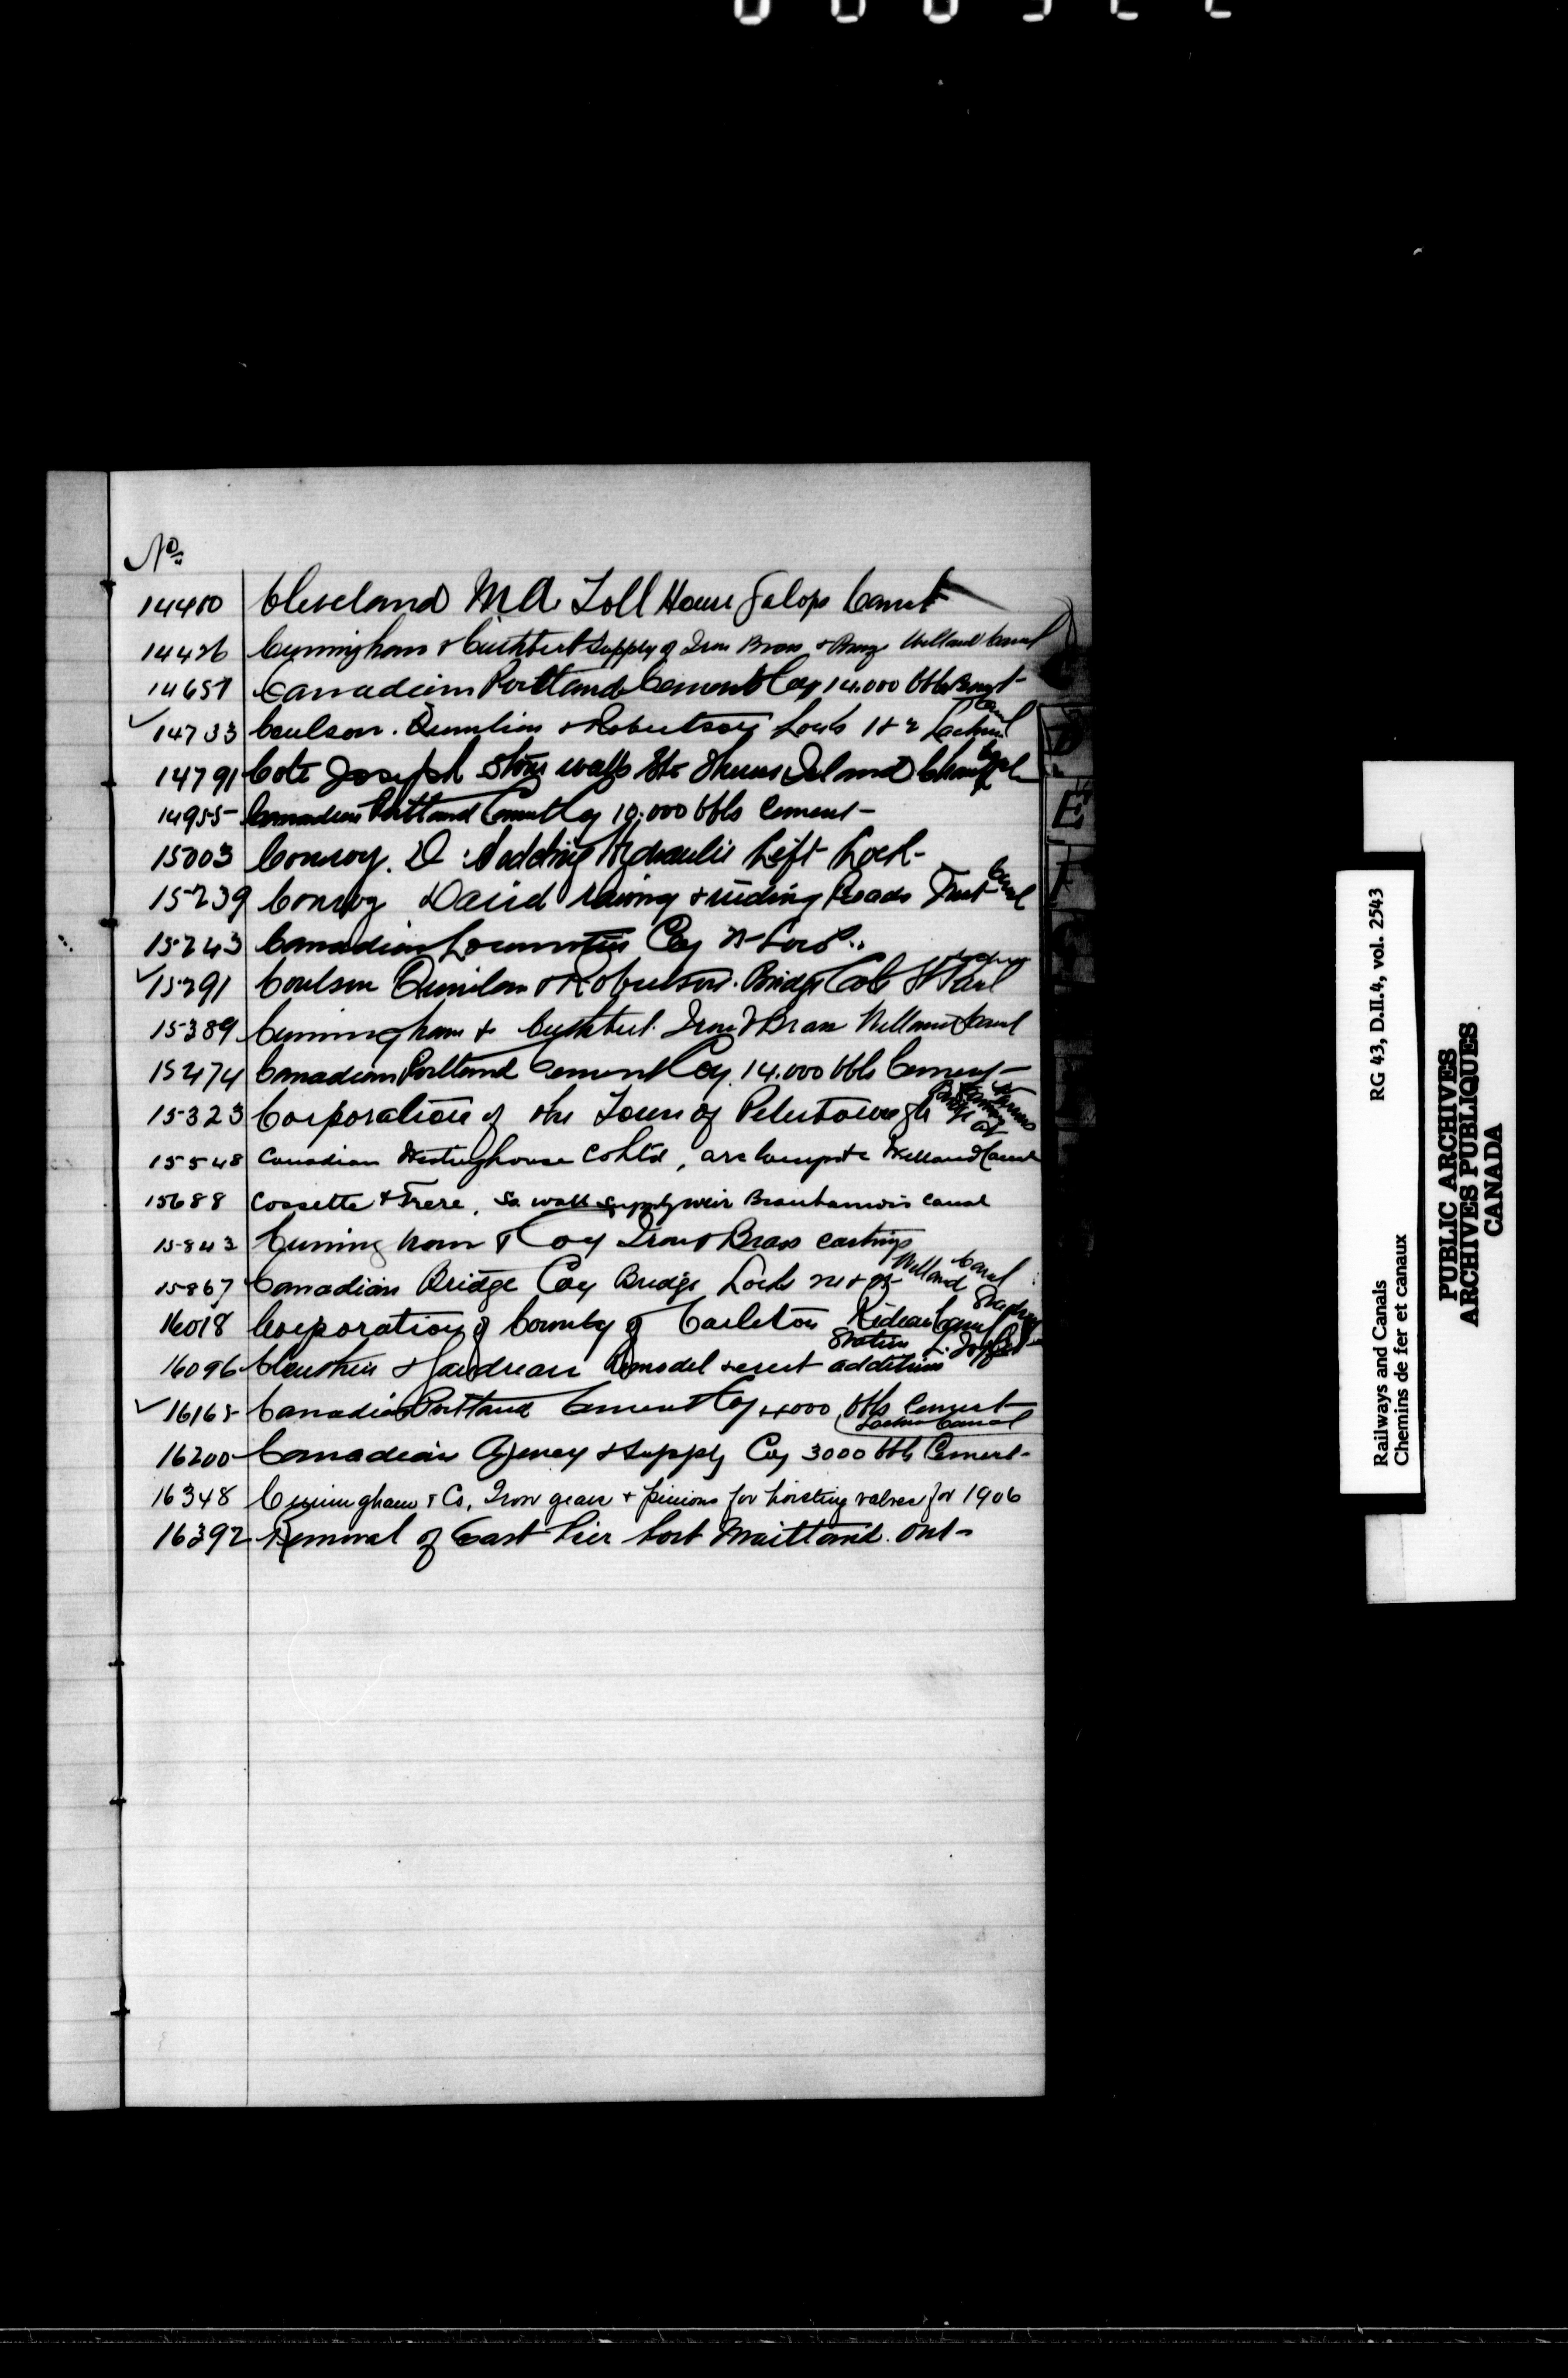 No.
14480 Cleveland M A. Toll House Galops Canal
14426 Cunningham & Cuthbert Supply of Iron Brass & Welland Canal
14657 Canadian Portland Cement Coy 14.000 bbls Cement
✓ 14733 Coulson. Quinlan & Robertson Locks 1 & 2 Lachine Canal
14791 Cote Joseph Stone walls Island
14955 Canadian Portland Cement Coy 10.000 bbls Cement
15003 Conroy. D. Sodding Hydraulic Lift Lock
15239 Conroy David raising & Roads Trent Canal
15243 Canadian Locomotive Coy
✓ 15291 Coulson Quinlan & Robertson. Bridge Cote St Paul Lachine
15389 Cunningham & Cuthbert. Iron & Brass Welland Canal
15474 Canadian Portland Cement Coy. 14.000 bbls Cement
15323 Corporation of the Town of Peterborough
15548 Canadian Westinghouse Co Ltd, arc lamps &c Welland Canal
15688 Cossette & Frere, So. wall supply weir Beauharnois Canal
15843 Cunningham & Coy Iron & Brass castings
15867 Canadian Bridge Coy Bridge Locks Welland Canal
16018 Corporation of County of Carleton Rideau Canal
16096 Cleuthier & Gaudreau Remodel & erect addition Station
✓ 16165 Canadian Portland Cement Coy 4000 bbls Cement
Lachine Canal
16200 Canadian Agency & Supply Coy 3000 bbls Cement
16348 Cunningham & Co, Iron gears & pinions for hoisting valves for 1906
16392 Removal of East Pier Port Maitland. Ont
D
E
F
Railways and Canals RG 43, D.II.4, vol. 2543
Chemins de fer et canaux
PUBLIC ARCHIVES
ARCHIVES PUBLIQUES
CANADA